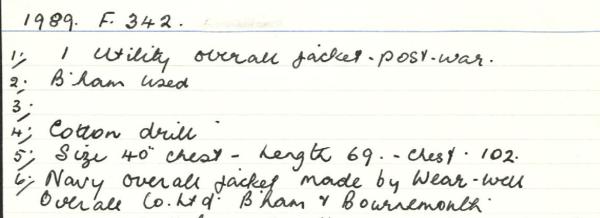 1989. F. 342.
1; 1 Utility overall jacket - post-war.
2; B'ham used
3;
4; Cotton drill
5; Size 40" chest - Length 69. - Chest. 102.
6; Navy overall jacket made by Wear-well
Overall Co. Ltd. B'ham & Bournemouth.